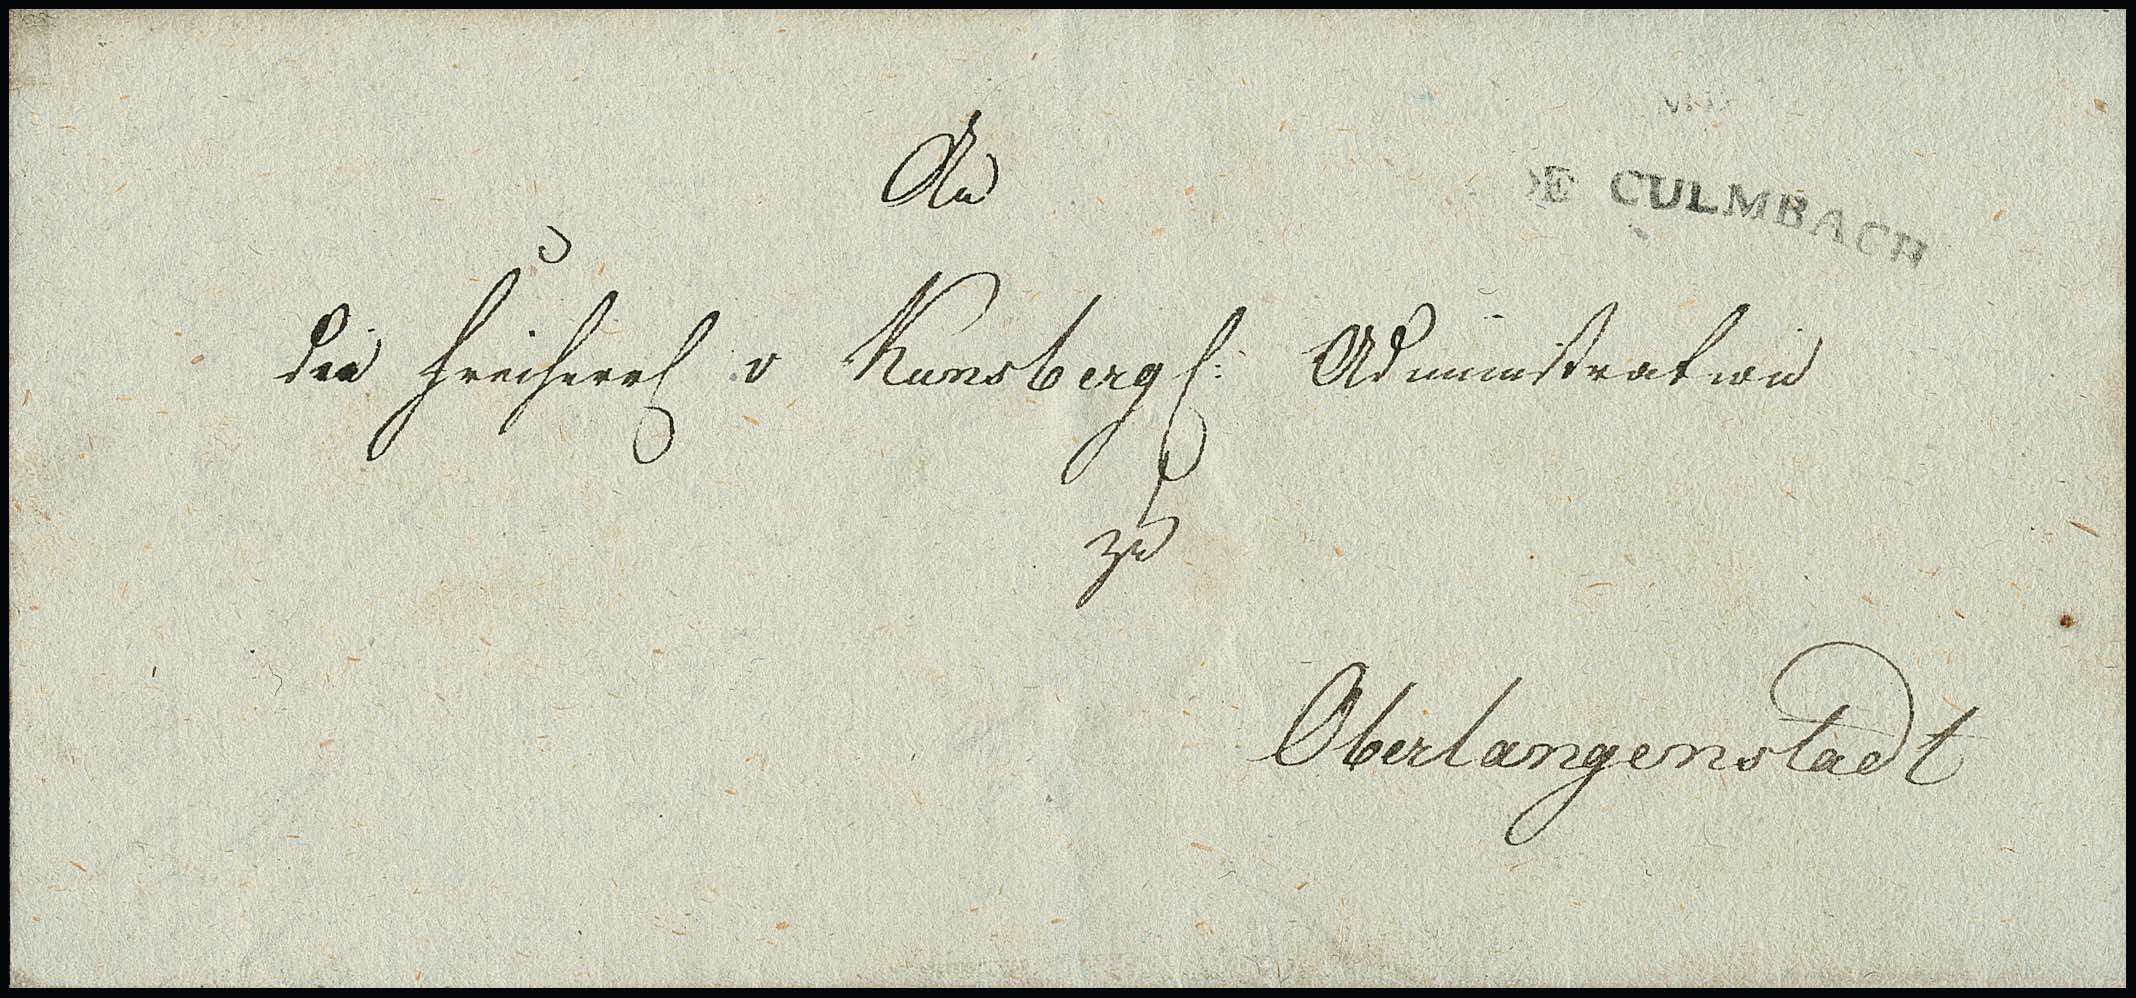 DE CULMBACH
An
die Freiherrl v Kunsbergl: Administration
zu
Oberlangenstadt